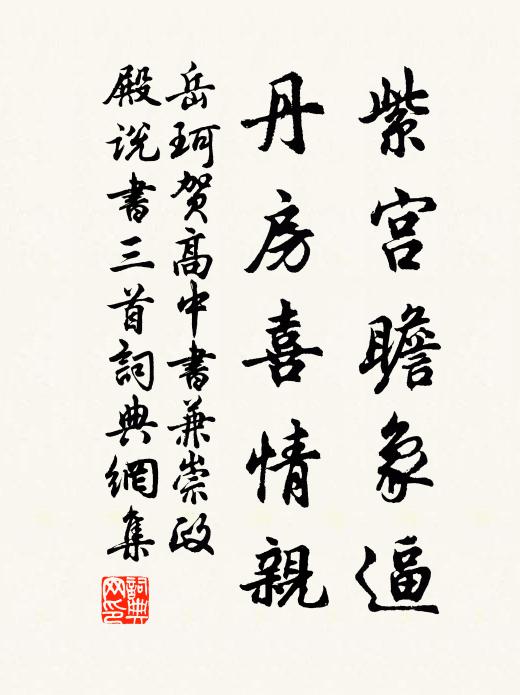 紫宫瞻象逼
丹房喜情親
岳珂贺高中書兼崇政
殿説書三首詞典網集
詞典
网印